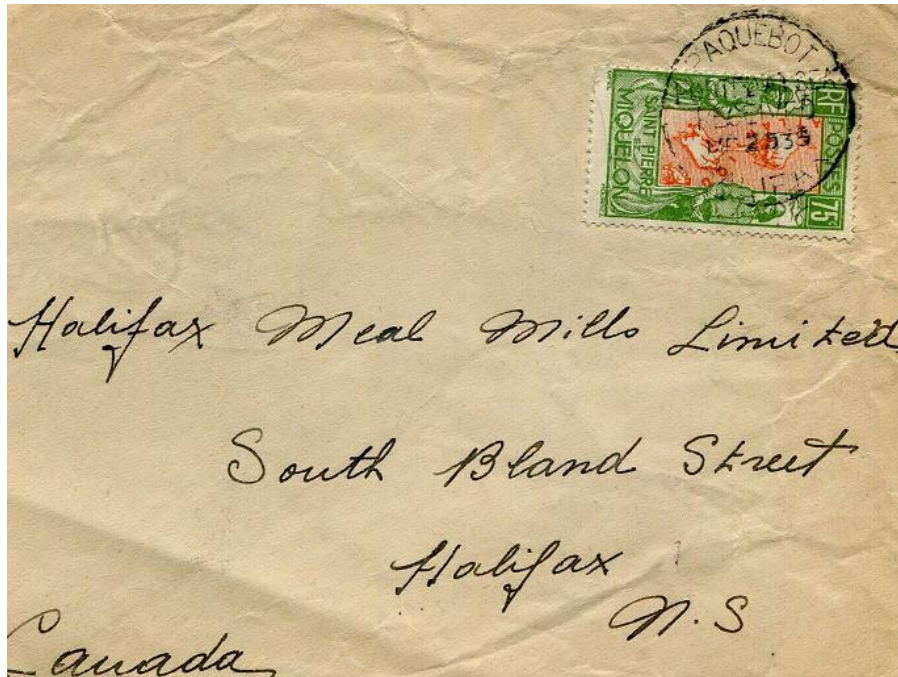 PAQUEBOT
POSTED AT SEA
2 5 35
RF POSTES
75c
SAINT PIERRE
MIQUELON
Halifax Meal Mills Limited,
South Bland Street
Halifax
N.S
Canada